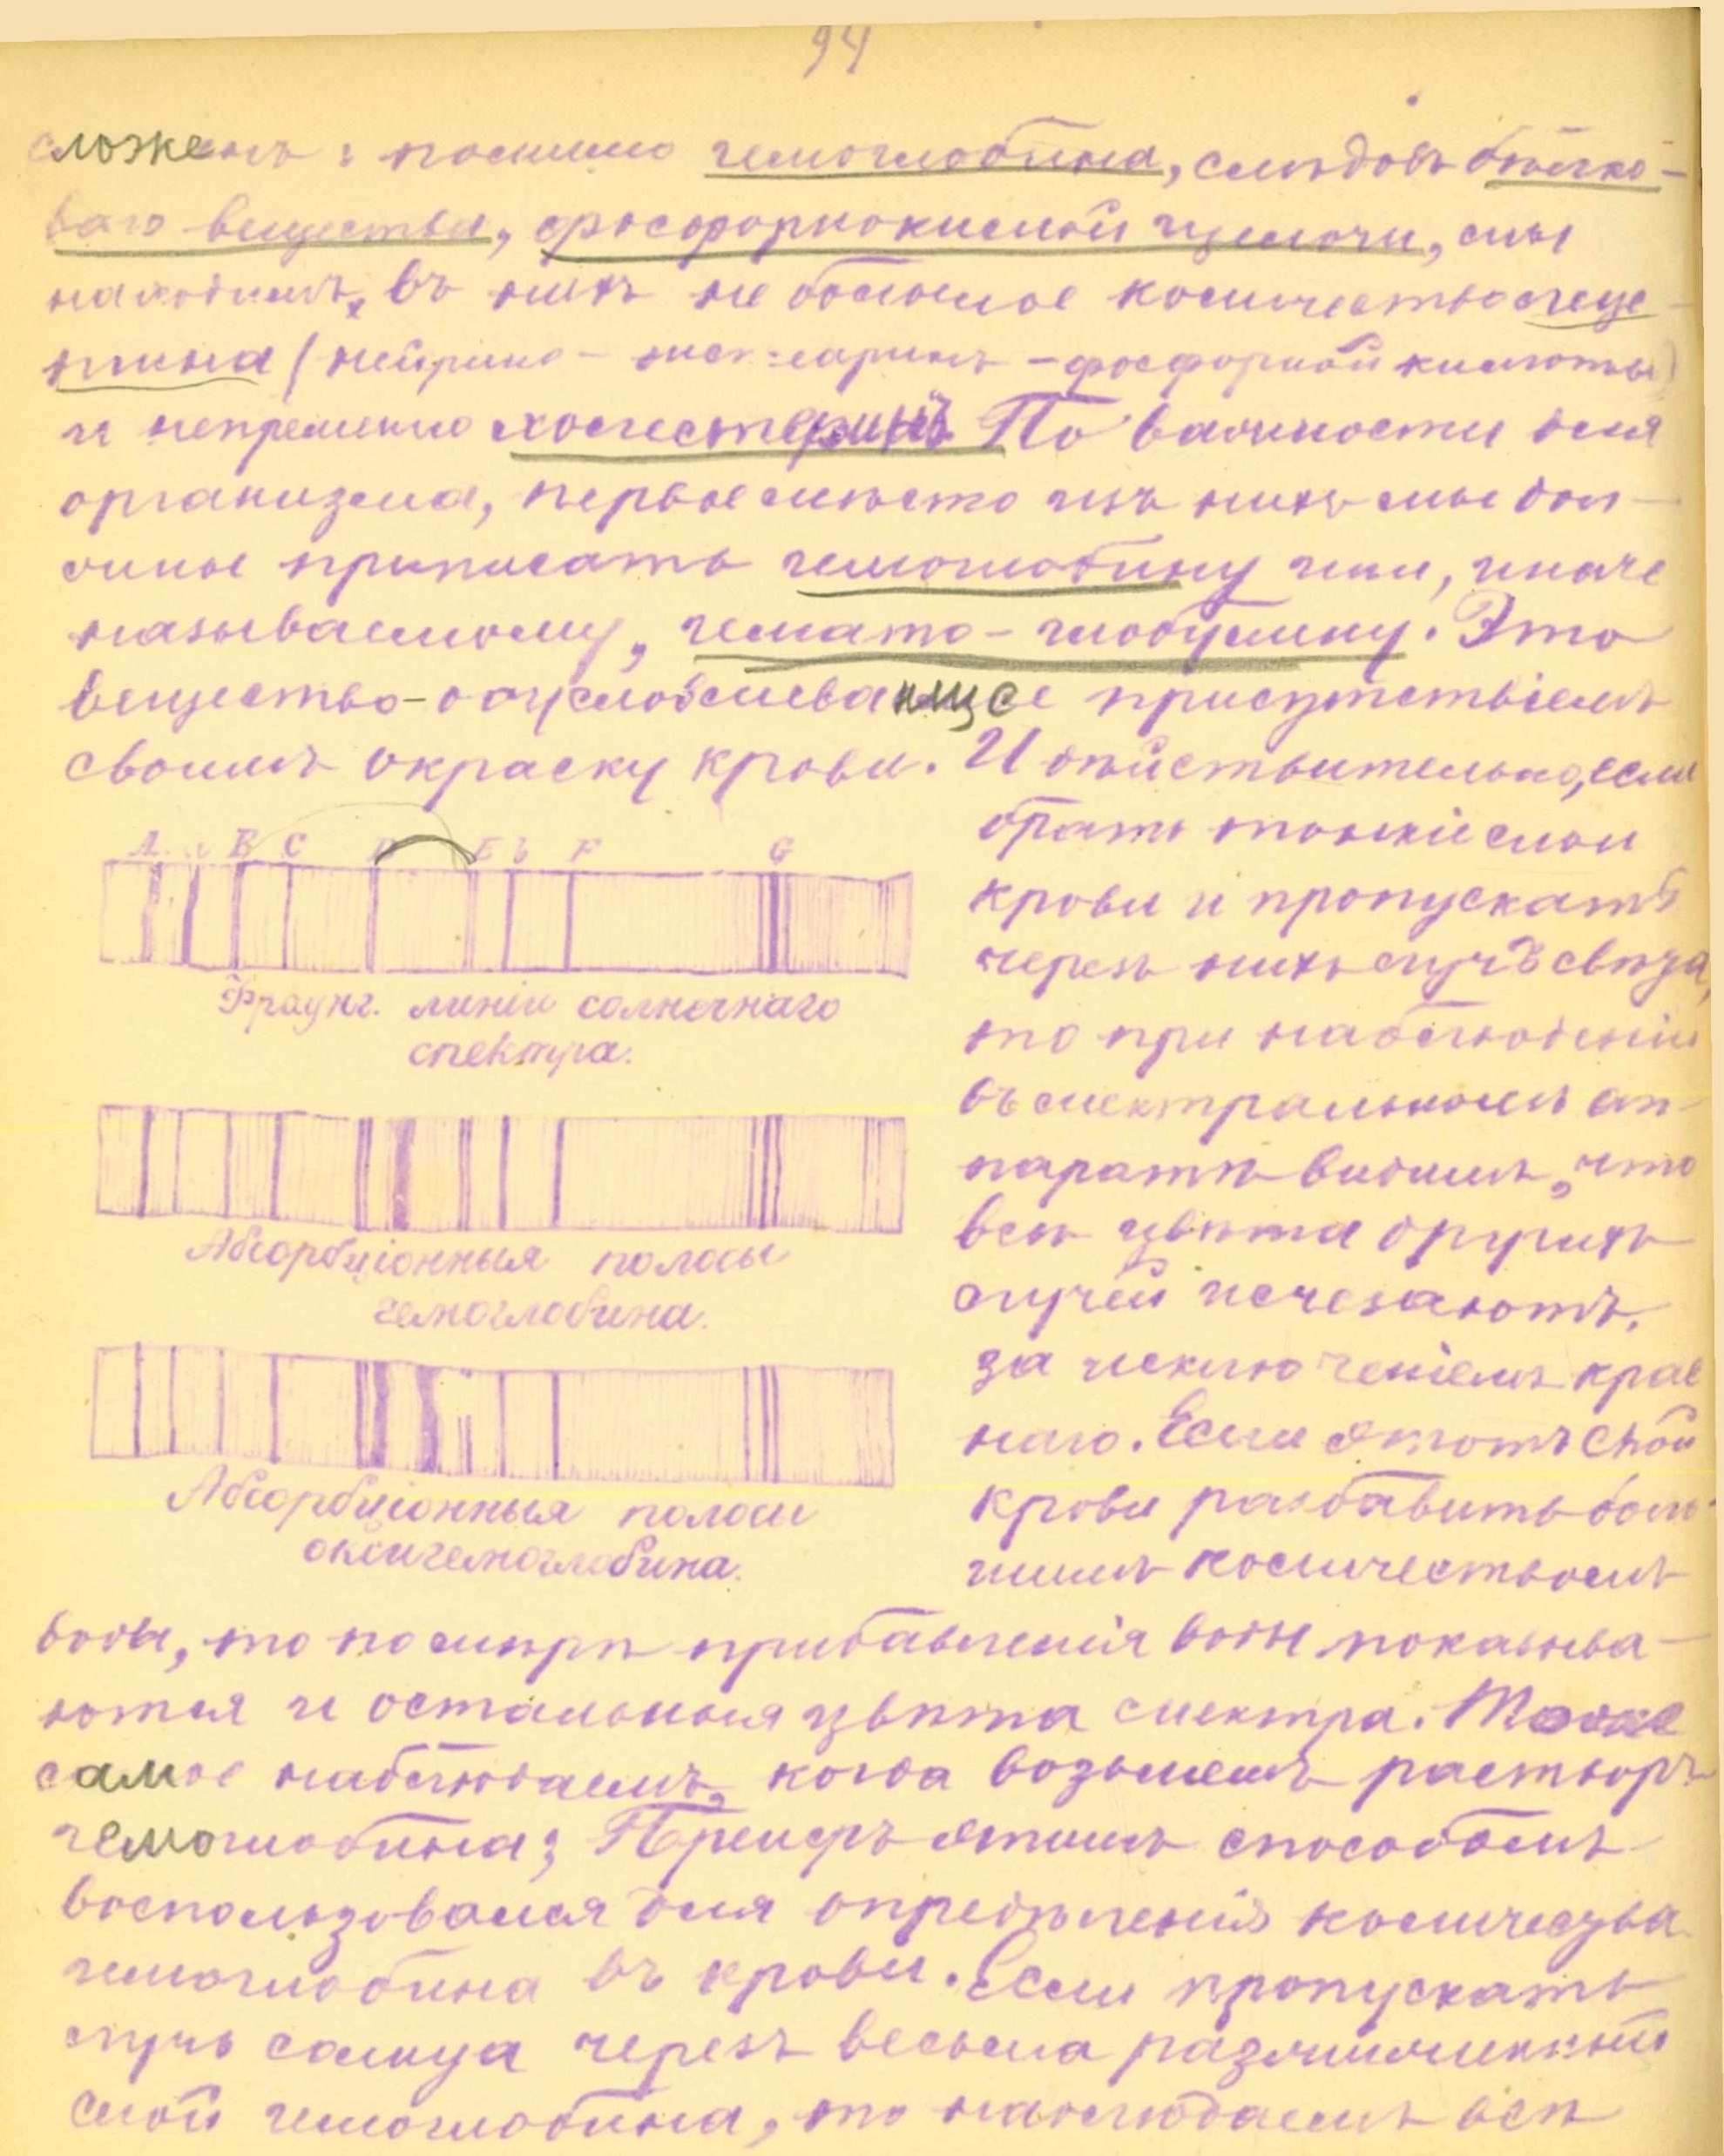 94
сложенъ: помимо гемоглобина, слѣдовъ бѣлко-
ваго вещества, фосфорнокислой щелочи, мы
находимъ, въ нихъ не большое количество леце-
тина (нейринъ - - фосфорной кислоты)
и непременно холестеринъ. По важности для
организма, первое мѣсто изъ нихъ мы дол-
жны приписать гемоглобину или, иначе
называемому, гемато-глобулину. Это
вещество - обусловливающее присутствіемъ
своимъ окраску крови. И дѣйствительно, если
брать тонкіе слои
крови и пропускать
черезъ нихъ лучъ свѣта,
то при наблюденіи
въ спектральномъ ап-
паратѣ видимъ, что
всѣ цвѣта другихъ
лучей исчезаютъ,
за исключеніемъ крас
наго. Если этотъ слой
крови разбавить боль-
шимъ количествомъ
A a B C D E b F G
Фраунг. линіи солнечнаго
спектра.
Абсорбціонныя полосы
гемоглобина.
Абсорбціонныя полосы
оксигемоглобина.
воды, то по мѣрѣ прибавленія воды показыва-
ются и остальныя цвѣта спектра. Тоже
самое наблюдаемъ, когда возьмемъ растворъ
гемоглобина; Прейеръ этимъ способомъ
воспользовался для опредѣленія количества
гемоглобина въ крови. Если пропускать
лучъ солнца черезъ весьма разжиженный
слой гемоглобина, то наблюдаемъ всѣ